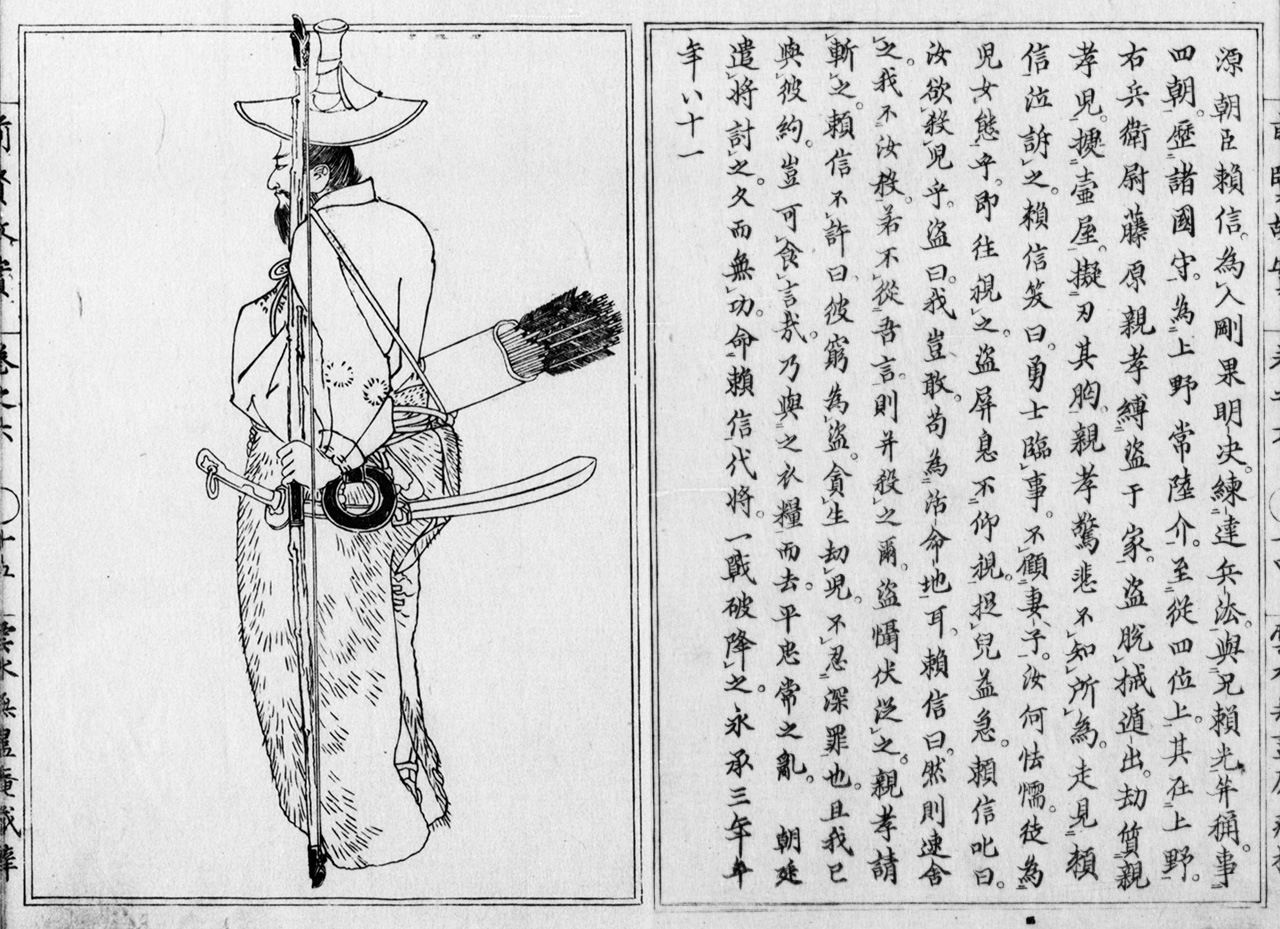 源朝臣頼信。為人剛果明决。練達兵法。與兄頼光竝稱。事
四朝。歷諸國守。為上野常陸介。至從四位上。其在上野。
右兵衛尉藤原親孝縛盜于家。盜脫械遁出。劫質親
孝児。據壺屋。擬刃其胸。親孝驚悲不知所為。走見頼
信泣訴之。頼信笑曰。勇士臨事。不顧妻子。汝何怯懦。徒為
児女態乎。即往視之。盜屏息不仰視。捉兒益急。頼信叱曰。
汝欲殺児乎。盜曰。我豈敢。苟為活命地耳。頼信曰。然則速舍
之。我不汝殺。若不從吾言。則并殺之爾。盜慴伏從之。親孝請
斬之。頼信不許曰。彼窮為盜。貪生劫児。不忍深罪也。且我已
與彼約。豈可食言哉。乃與之衣糧而去。平忠常之亂。朝廷
遣將討之。久而無功。命頼信代將。一戰破降之。永承三年卒
年八十一
前賢故實 卷之六 十五 雲水無盡庵藏